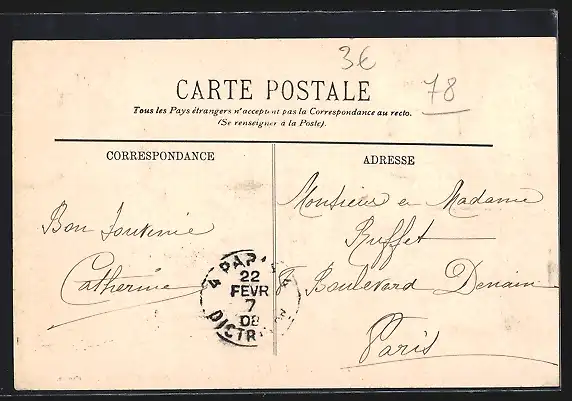 3€
78
CARTE POSTALE
Tous les Pays étrangers n'acceptent pas la Correspondance au recto.
(Se renseigner à la Poste).
CORRESPONDANCE
ADRESSE
Bon Souvenir
Catherine
Monsieur et Madame
Buffet
8 Boulevard Denain
Paris
PARIS
22
FEVR
7
08
DISTR